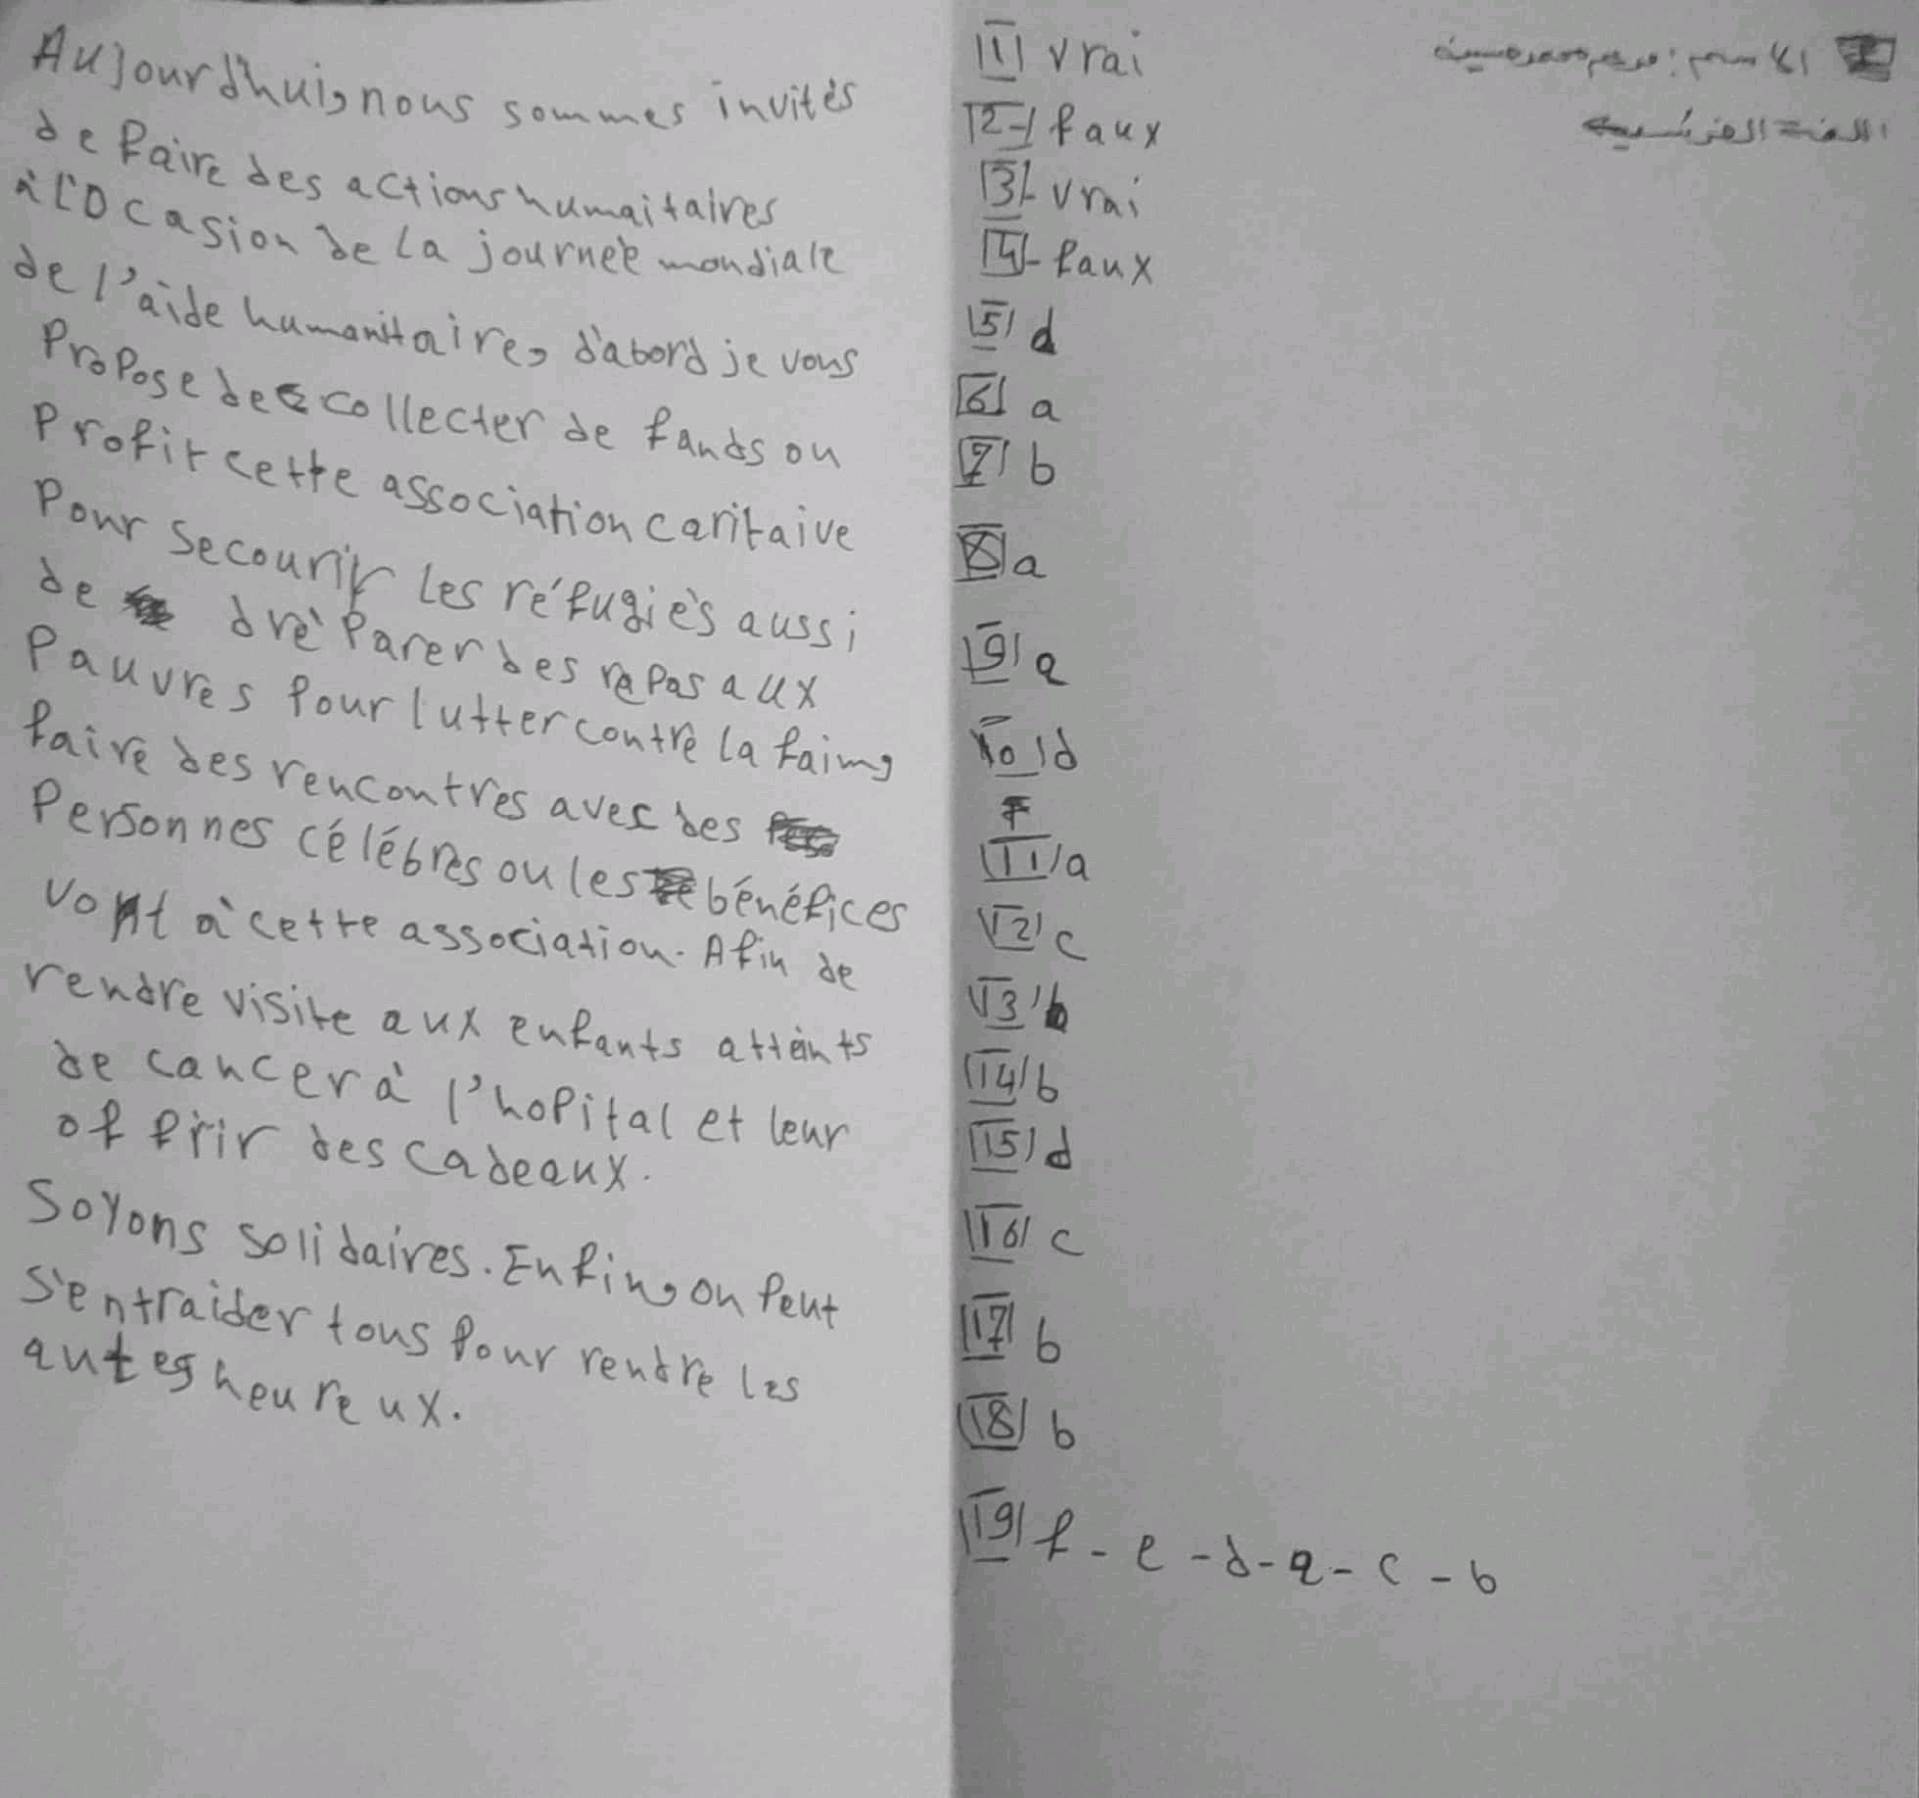 Aujourd'hui, nous sommes invités
de faire des actions humaitaires
à l'Ocasion de la journée mondiale
de l'aide humanitaire, d'abord je vous
Propose de collecter de fands ou
Profit cette association caritaive
Pour secourir les réfugiés aussi
de dréparer des repas aux
Pauvres Pour lutter contre la faim,
faire des rencontres avec des
Personnes célébres ou les bénéfices
vont à cette association. Afin de
rendre visite aux enfants atteints
de cancer à l'hopital et leur
offrir des cadeaux.
Soyons solidaires. Enfin, on Peut
s'entraider tous Pour rendre les
autes heureux.
الاسم:
اللغة الفرنسية
1 vrai
2- faux
3- vrai
4- faux
5 d
6 a
7 b
8 a
9 a
10 d
11 a
12 c
13 b
14 b
15 d
16 c
17 b
18 b
19 f - e - d - a - c - b